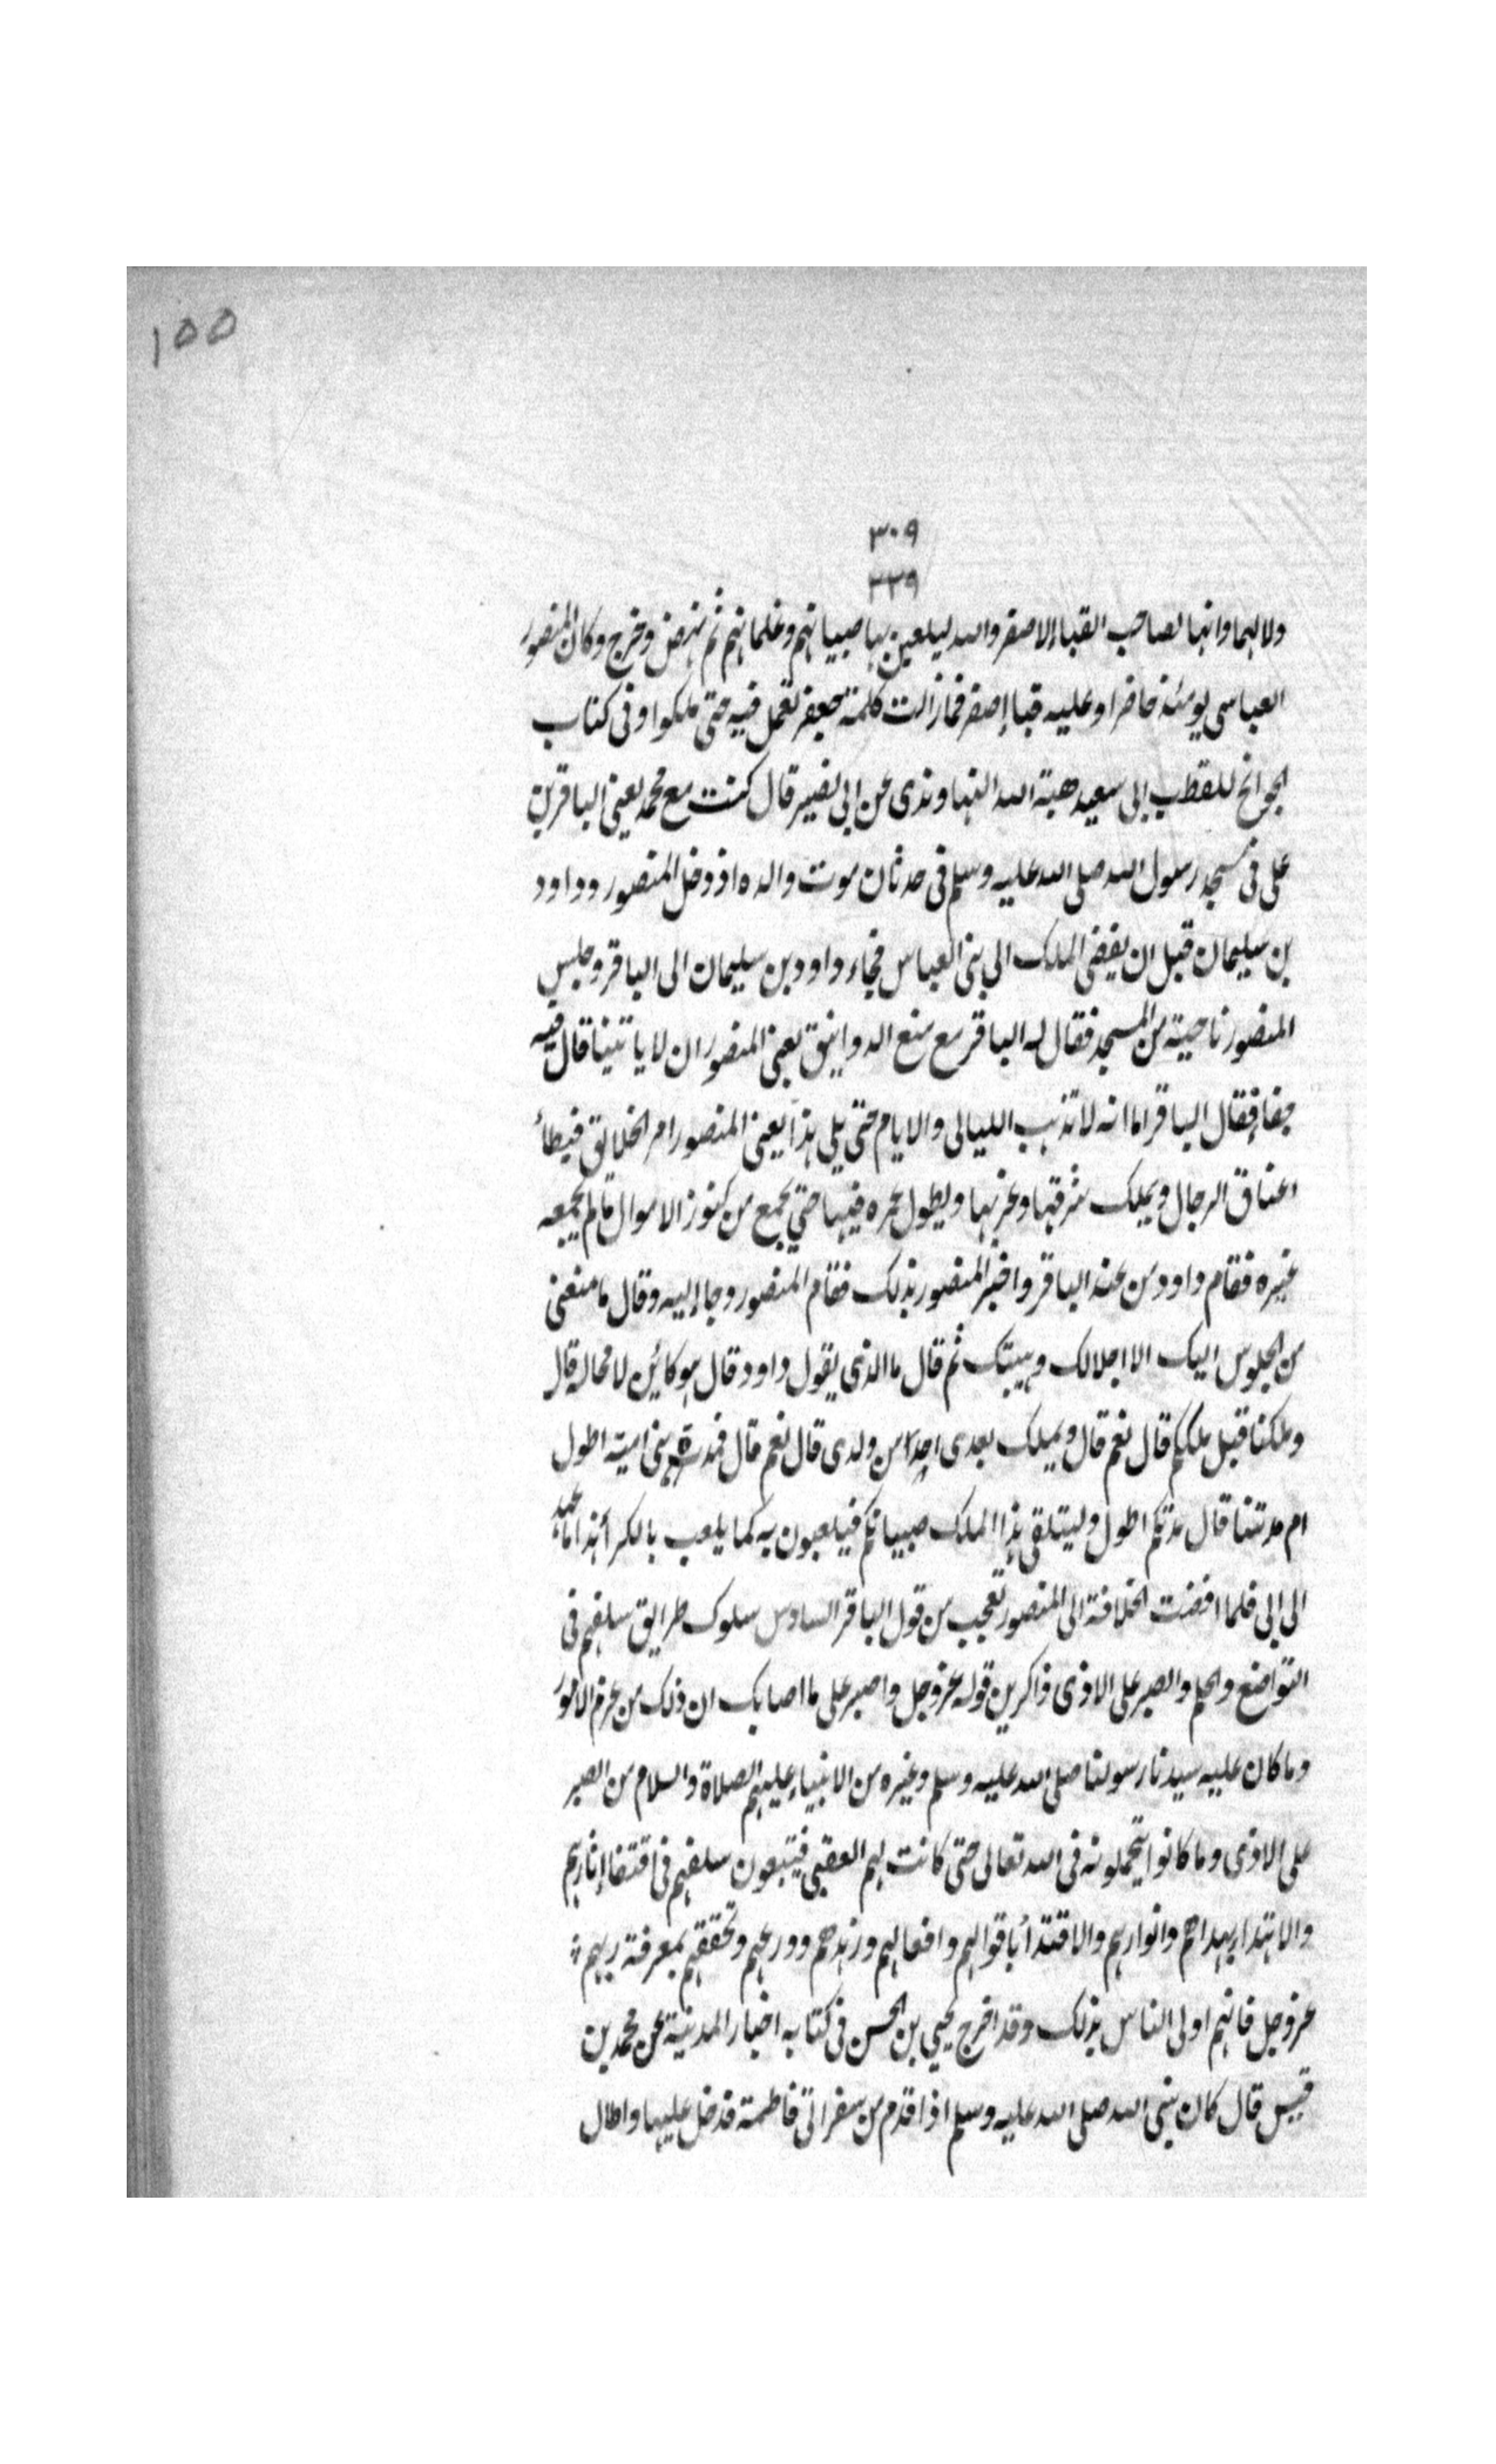 ١٥٥
٣٠٩
٣٣٩
ولا لهما وانها لصاحب القباء الاصفر والله ليلعبن بها صبيانهم وغلمانهم ثم نهض وخرج وكان المنصور
العباسي يومئذ حاضرا وعليه قباء اصفر فما زالت كلمة جعفر تعمل فيه حتى ملكوا وفى كتاب
للقطب ابى سعيد هبة الله النهاوندى عن ابى نصير قال كنت مع محمد يعنى الباقر بن
على فى مسجد رسول الله صلى الله عليه وسلم فى حدثان موت والده اذ دخل المنصور وداود
بن سليمان قبل ان يفضى الملك الى بنى العباس فجاء داود بن سليمان الى الباقر وجلس
المنصور ناحية من المسجد فقال له الباقر مع منع الدوانيق يعنى المنصور ان لا ياتينا قال فيه
جفاء فقال الباقر اما انه لا تذهب الليالى والايام حتى يلى هذا يعنى المنصور امر الخلايق فيطأ
اعناق الرجال ويملك شرقها وغربها ويطول عمره فيها حتى يجمع من كنوز الاموال مالم يجمعه
غيره فقام داود من عند الباقر واخبر المنصور بذلك فقام المنصور وجاء اليه وقال ما منعنى
من الجلوس اليك الا اجلالك وهيبتك ثم قال ما الذى يقول داود قال هو كائن لا محالة قال
وملكنا قبل ملككم قال نعم قال ويملك بعدى احد من ولدى قال نعم قال فمدة بنى امية اطول
ام مدتنا قال مدتكم اطول وليتلقى هذا الملك صبيانكم فيلعبون به كما يلعب بالكرة هذا ما عهد
الى ابى فلما افضت الخلافة الى المنصور تعجب من قول الباقر السادس سلوك طرايق سلفهم فى
التواضع والحلم والصبر على الاذى ذاكرين قوله عزوجل واصبر على ما اصابك ان ذلك من عزم الامور
وما كان عليه سيدنا رسولنا صلى الله عليه وسلم وغيره من الانبياء عليهم الصلاة والسلام من الصبر
على الاذى وما كانوا يتحملونه فى الله تعالى حتى كانت لهم العقبى فيتبعون سلفهم فى اقتفاء اثارهم
والاهتداء بهداهم وانوارهم والاقتداء باقوالهم وافعالهم وزهدهم وورعهم وتحققهم بمعرفة ربهم
عزوجل فانهم اولى الناس بذلك وقد اخرج يحيى بن الحسن فى كتابه اخبار المدينة عن محمد بن
قيس قال كان نبى الله صلى الله عليه وسلم اذا قدم من سفر اتى فاطمة فدخل عليها واطال